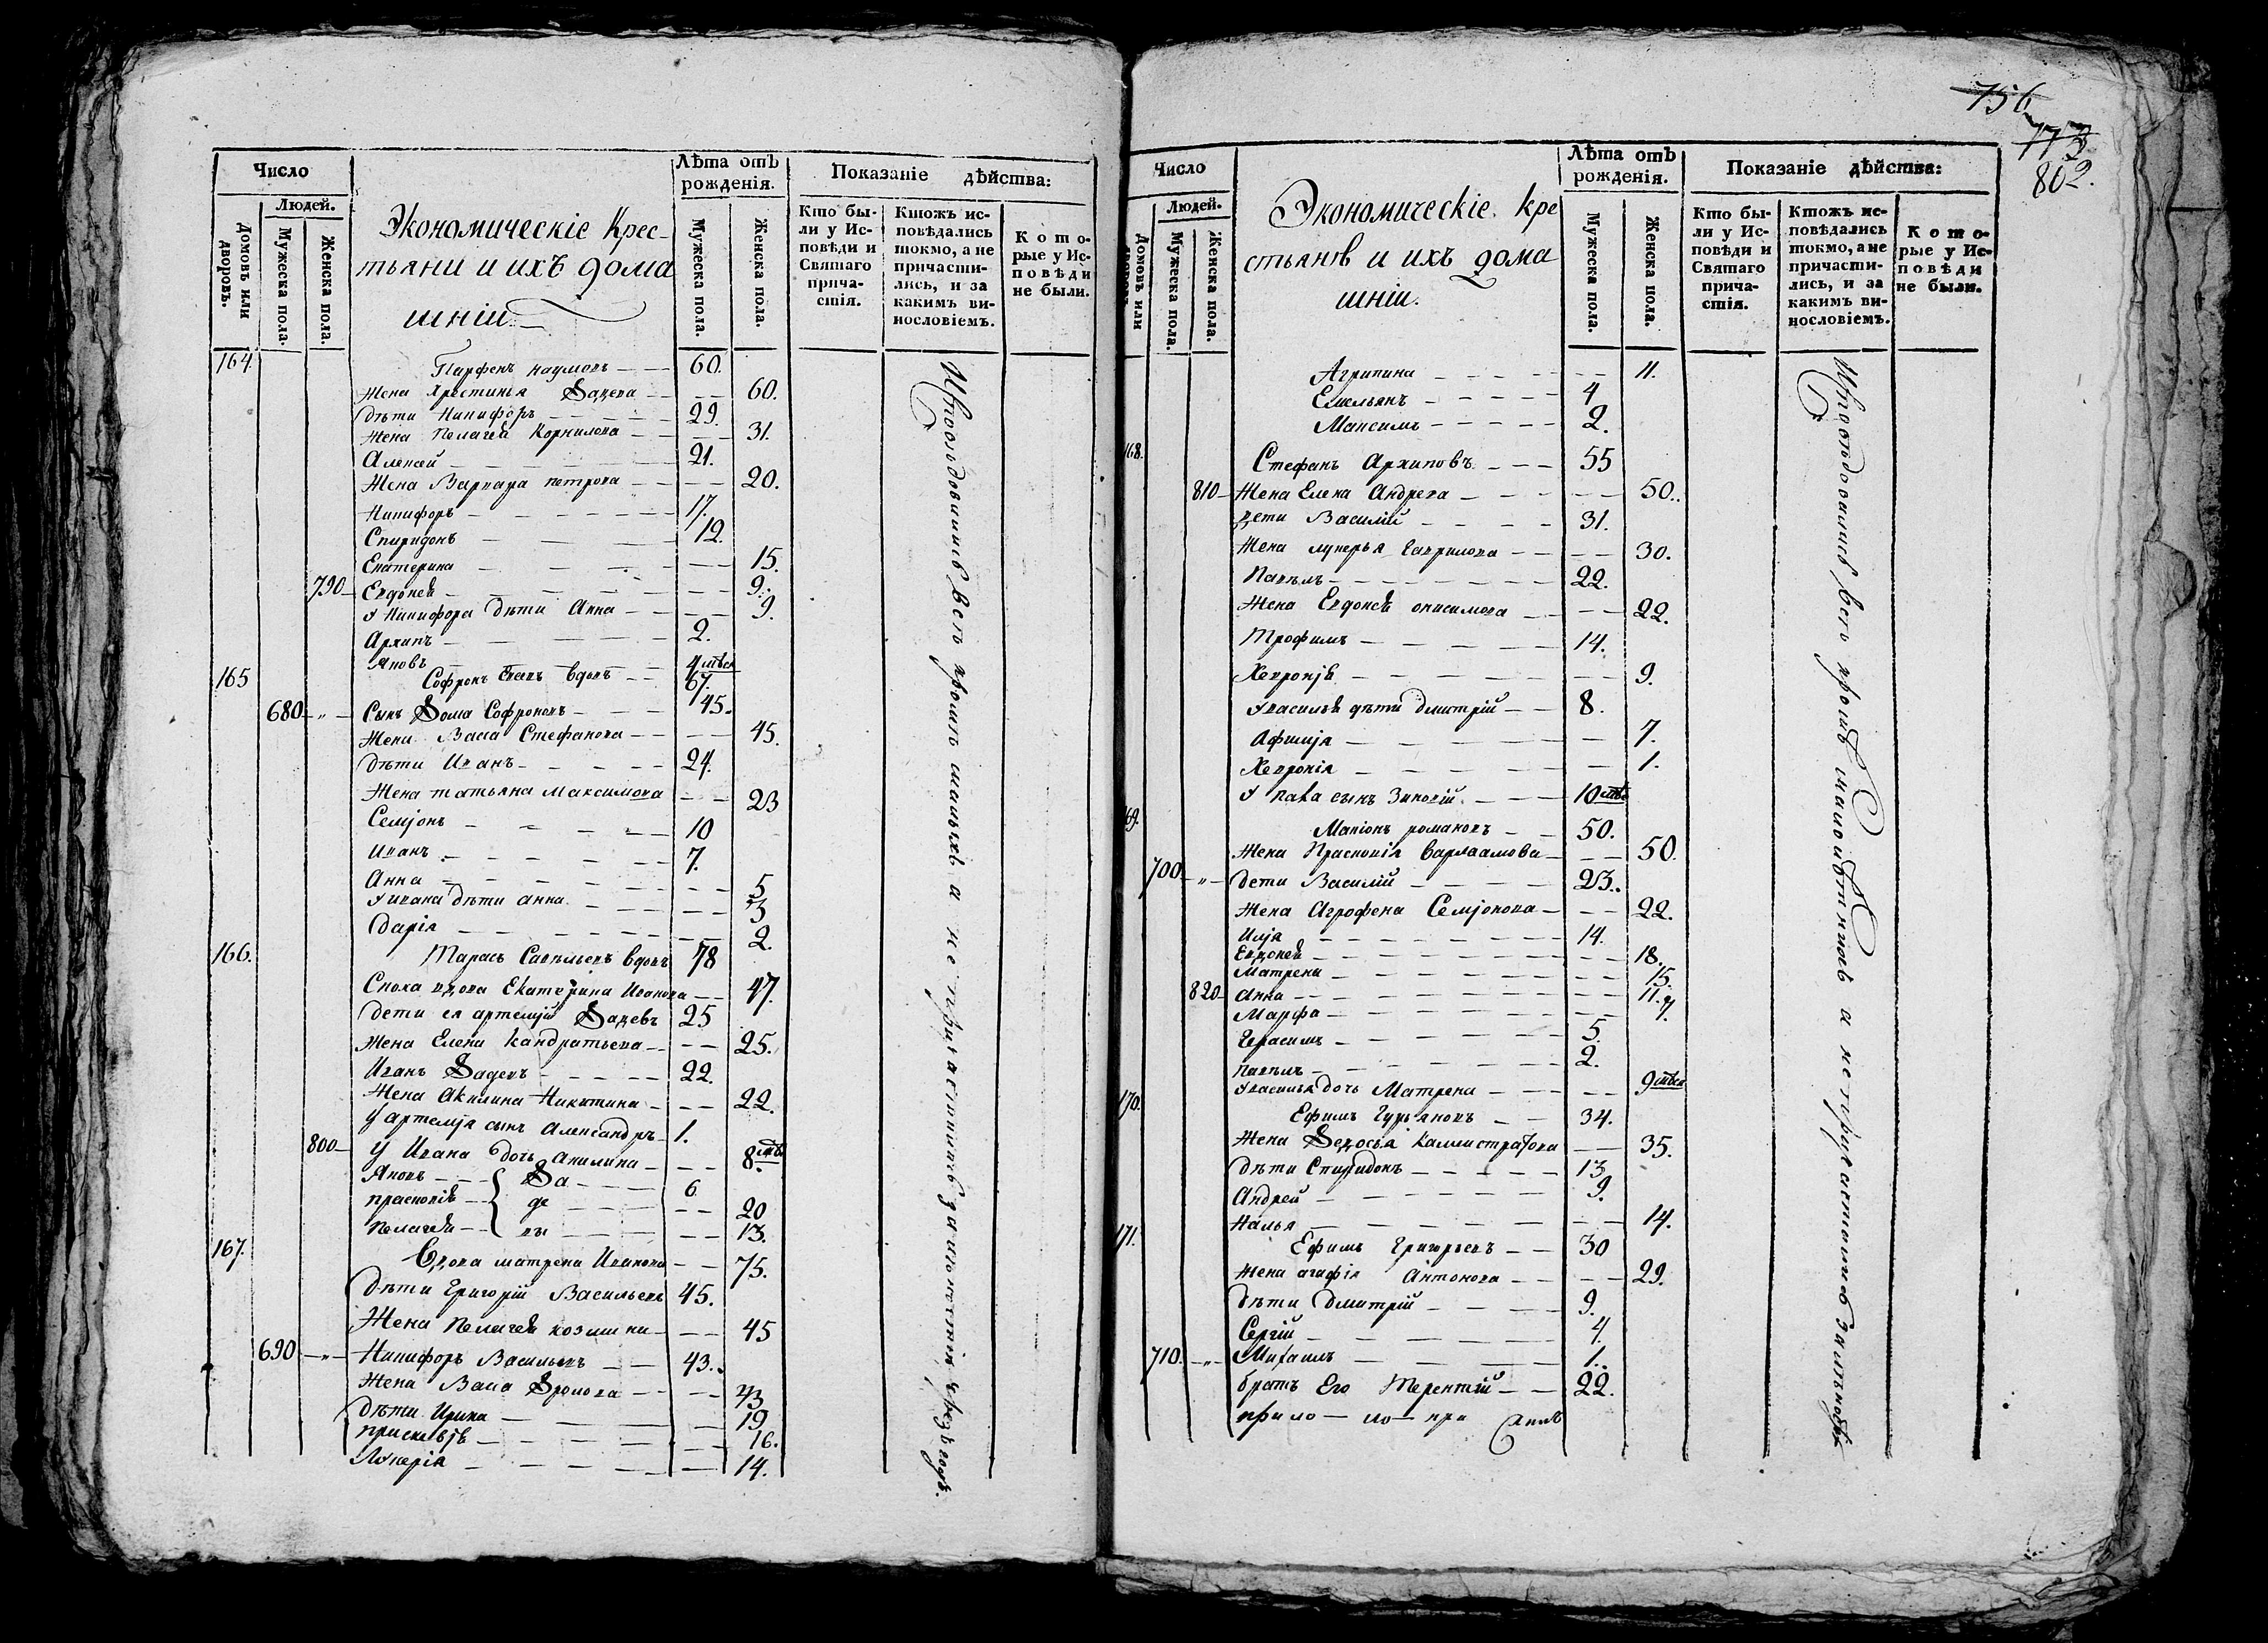 756
773
802.
Число
Людей.
Домовъ или дворовъ.
Мужеска пола.
Женска пола.
Экономическіе Крес-
тьяни и ихъ дома
шніи
Лѣта отъ рожденія.
Мужеска пола.
Женска пола.
Показаніе дѣйства:
Кто бы-
ли у Ис-
повѣди и
Святаго
прича-
стія.
Ктожъ ис-
повѣдались
токмо, а не
причасти-
лись, и за
какимъ ви-
нословіемъ.
К о т о-
рые у Ис-
п о в ѣ д и
не были.
164. Парфенъ наумовъ 60.
Жена Христинья Ѳадева 60.
дѣти Никифоръ 29.
Жена Пелагея Корнилова 31.
Алексей 21.
Жена Варвара петрова 20.
Никифоръ 17.
Спиридонъ 12.
Екатерина 15.
790 Евдокея 9.
У Никифора дѣти Анна 9.
Архипъ 2.
Яковъ 4 мѣся
165 Софронъ вдовъ 67.
680 Сынъ Ѳома Софроновъ 45.
Жена Васа Стефанова 45.
дѣти Иванъ 24.
Жена татьяна Максимова 23
Семіонъ 10
Иванъ 7.
Анна 5
У ивана дѣти анна 3
дарія 2.
166. Тарасъ Савельевъ вдовъ 78
Сноха вдова Екатерина Иванова 47.
дети ея артемій Ѳадевъ 25
Жена Елена кандратьева 25.
Иванъ Ѳадевъ 22.
Жена Акилина Никитина 22.
У артемія сынъ Александръ 1.
800 У Ивана дочь Акилина 8 мѣ
Яковъ Ѳа 6
прасковія де 20
Пелагея вы 13.
167. Вдова матрена Иванова 75.
дѣти Григорій Васильевъ 45.
Жена Пелагея козмина 45
690 Никифоръ Васильевъ 43.
Жена Васа Ѳролова 43
дѣти Ирина 19
16.
Лукерія 14.
Число
Людей.
Домовъ или дворовъ.
Мужеска пола.
Женска пола.
Экономическіе кре
стьянѣ и ихъ дома
шніи.
Лѣта отъ рожденія.
Мужеска пола.
Женска пола.
Показаніе дѣйства:
Кто бы-
ли у Ис-
повѣди и
Святаго
прича-
стія.
Ктожъ ис-
повѣдались
токмо, а не
причасти-
лись, и за
какимъ ви-
нословіемъ.
К о т о-
рые у Ис-
п о в ѣ д и
не были.
Агрипина 11.
Емельянъ 4
Максимъ 2.
168. Стефанъ Архиповъ 55
810 Жена Елена Андрева 50.
дети Василій 31.
Жена лукерья Гаврилова 30.
Павелъ 22.
Жена Евдокея онисимова 22.
Трофимъ 14.
Хевронія 9.
У василья дѣти дмитрій 8.
Афимія 7.
Хевронія 1.
У пава сынъ Зиновій 10 мѣс
169. романовъ 50.
Жена Прасковія варлаамова 50.
700 дети Василій 23.
Жена Агрофена Семіонова 22.
Илія 14.
Евдокея 18.
Матрена 15.
820 Анна 11.
Марфа 7
Герасимъ 5.
Павелъ 2.
У василья дочь Матрена 9 мѣся
170. Ефимъ Гурьяновъ 34.
Жена Ѳедосья Каллистратова 35.
дѣти Спиридонъ 13
Андрей 9.
Налья 14.
171. Ефимъ Григорьевъ 30
Жена агафія Антонова 29.
дѣти дмитрій 9.
Сергій 4.
710. Михаилъ 1.
братъ Его Терентій 22.